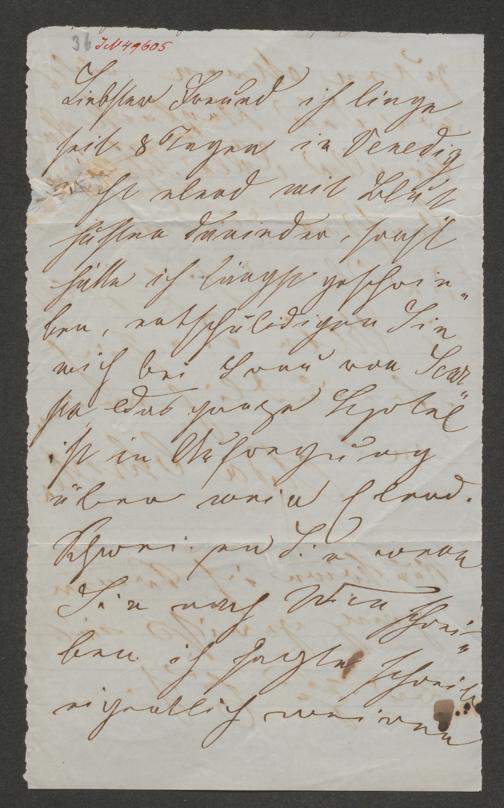 36 IN 49605
Liebster Freund ich liege
seit 8 Tagen in Venedig
elend mit Blut
husten darnieder, sonst
hätte ich längst geschrie"
ben, entschuldigen Sie
mich bei Frau von
das ganze Hotel
ist in Aufregung
über mein Elend.
Schweigen Sie wenn
Sie nach Wien schrei"
ben. ich sagte
eigentlich meinen